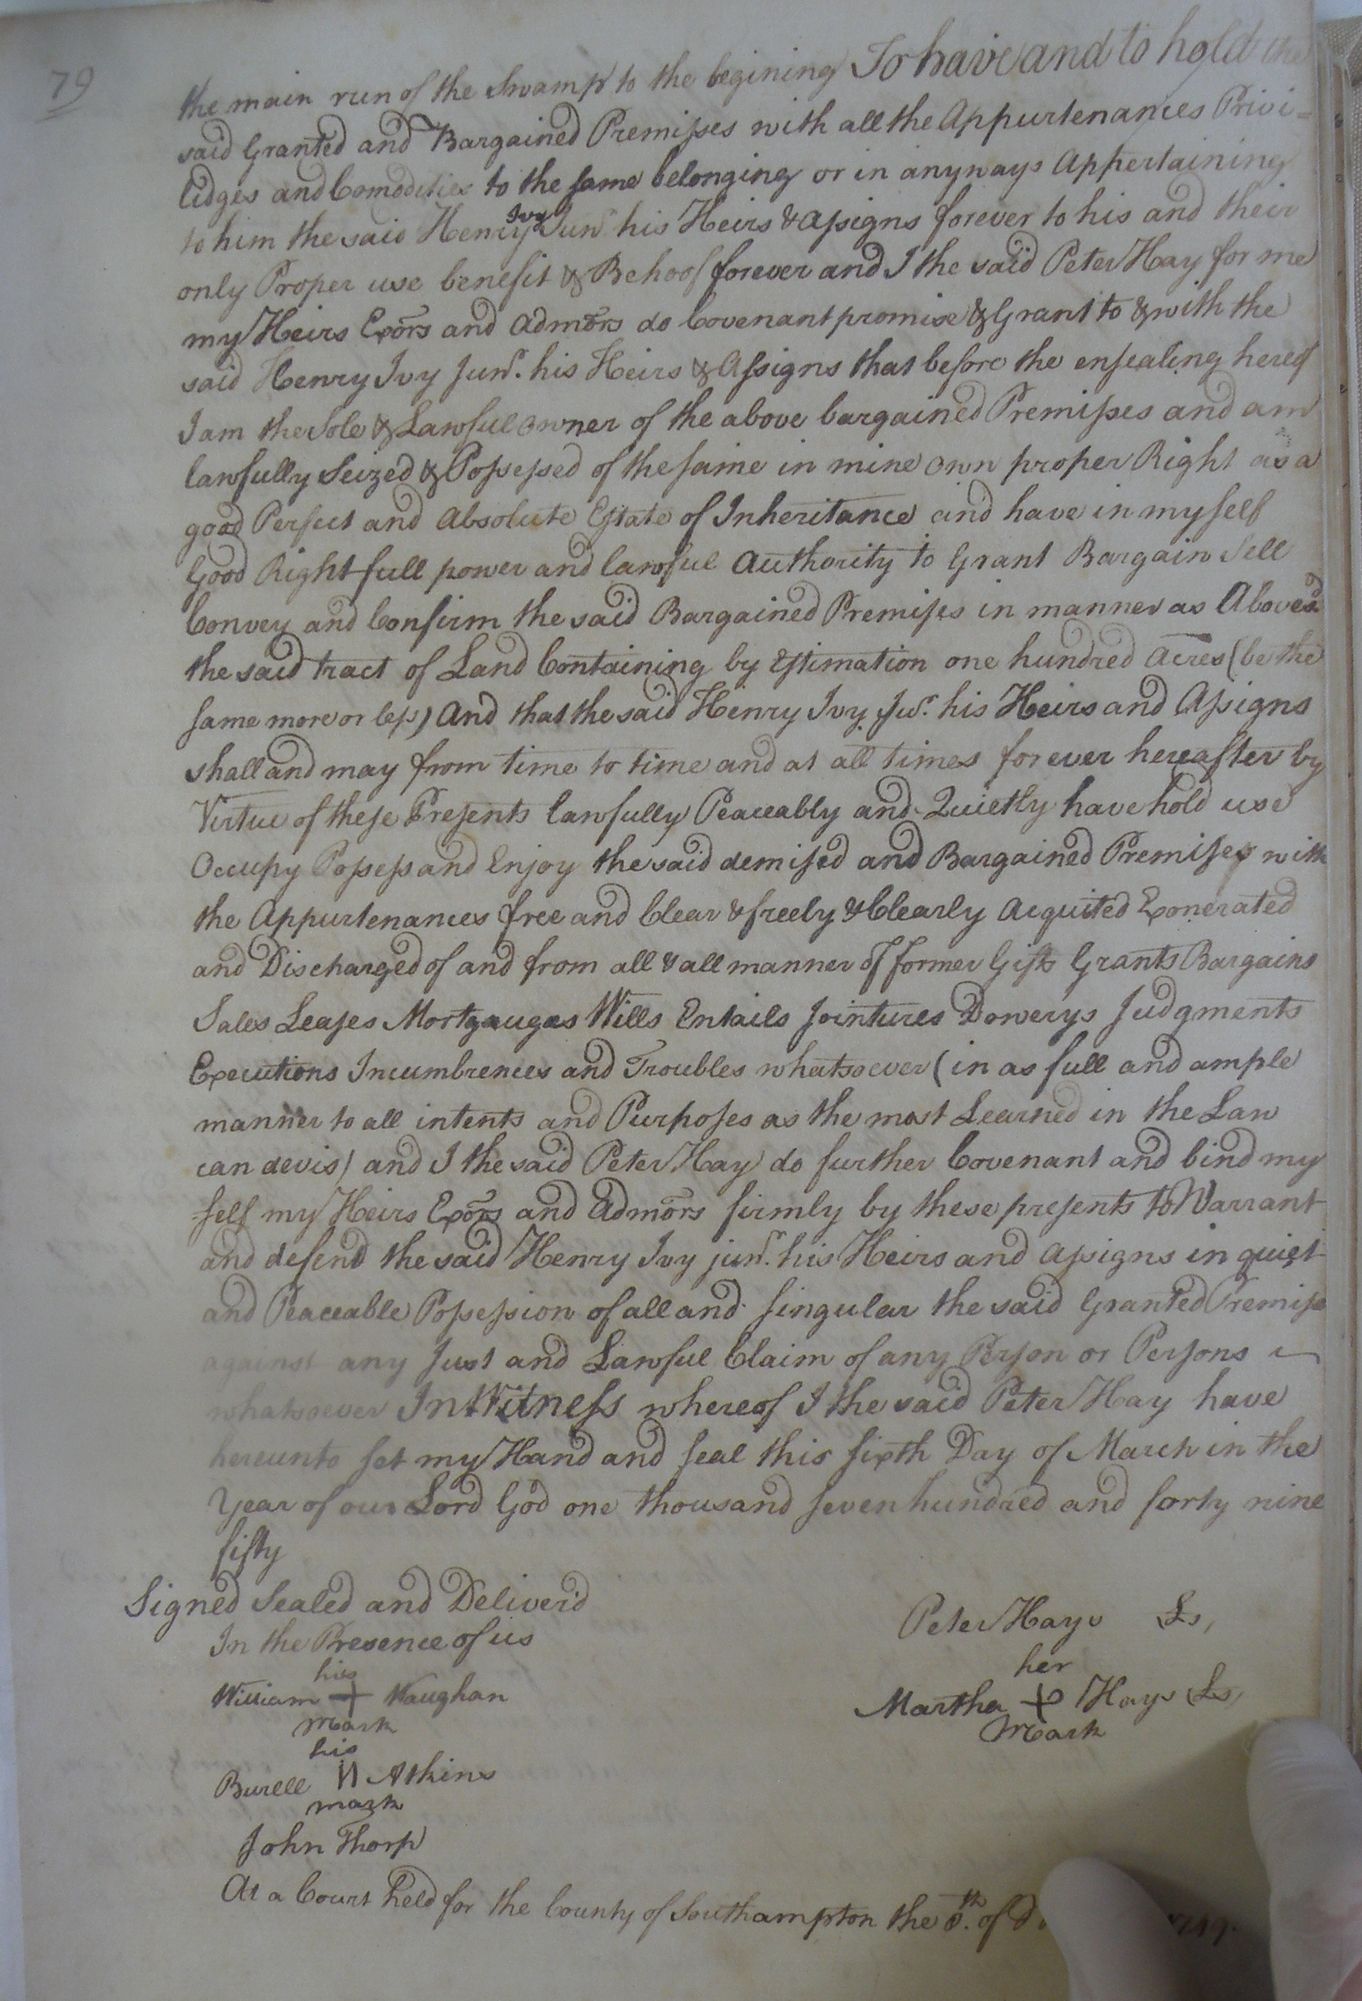 79
the main run of the Swamp to the begining To have and to hold the
said Granted and Bargained Premisses with all the Appurtenances Privi=
lidges and Comodities to the same belonging or in anyways Appertaining
to him the said Henry Ivy Junr his Heirs & Assigns forever to his and their
only Proper use benefit & Behoof forever and I the said Peter Hay for me
my Heirs Exors and Admors do Covenant promise & Grant to & with the
said Henry Ivy Junr. his Heirs & Assigns that before the ensealing hereof
I am the Sole & Lawful owner of the above bargained Premisses and am
lawfully Seized & Possessed of the same in mine own proper Right as a
good Perfect and Absolute Estate of Inheritance and have in my self
Good Right full power and lawful Authority to Grant Bargain Sell
Convey and Confirm the said Bargained Premisses in manner as Abovesd.
the said tract of Land Containing by Estimation one hundred Acres (be the
same more or less) And that the said Henry Ivy Jur. his Heirs and Assigns
shall and may from time to time and at all times forever hereafter by
Virtue of these Presents lawfully Peaceably and Quietly have hold use
Occupy Possess and Enjoy the said demised and Bargained Premises with
the Appurtenances free and Clear & freely & Clearly Acquited Exonerated
and Discharged of and from all & all manner of former Gifts Grants Bargains
Sales Leases Mortgauges Wills Entails Jointures Dowerys Judgments
Executions Incumbrences and Troubles whatsoever (in as full and ample
manner to all intents and Purposes as the most Learned in the Law
can devis) and I the said Peter Hay do further Covenant and bind my
self my Heirs Exors and Admors firmly by these presents to Warrant
and defend the said Henry Ivy junr. his Heirs and Assigns in quiet
and Peaceable Possession of all and singular the said Granted Premises
against any Just and Lawful Claim of any Person or Persons
whatsoever In Witness whereof I the said Peter Hay have
hereunto set my Hand and seal this sixth Day of March in the
Year of our Lord God one thousand seven hundred and forty nine
fifty
Signed Sealed and Deliver'd
In the Presence of us
Peter Hays Ls,
his
William + Vaughan
mark
her
Martha Hays Ls,
Mark
his
Burell Atkins
mark
John Thorp
At a Court held for the County of Southampton the 8th. of 1749.